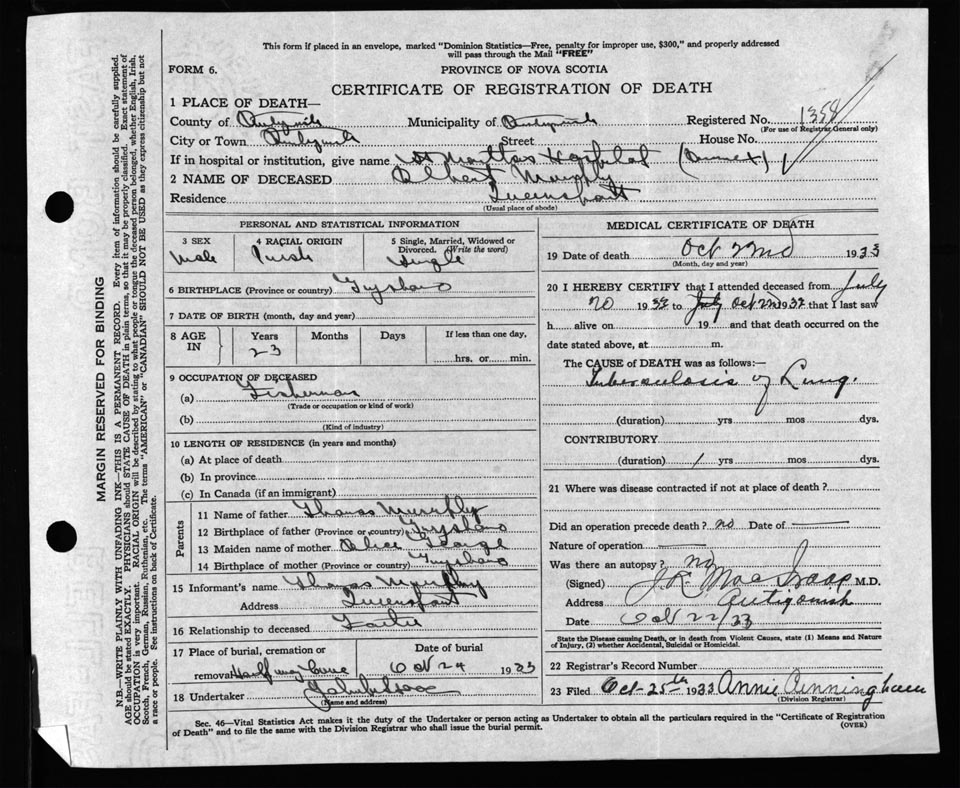 This form if placed in an envelope, marked "Dominion Statistics—Free, penalty for improper use, $300," and properly addressed
will pass through the Mail "FREE"
FORM 6.
PROVINCE OF NOVA SCOTIA
CERTIFICATE OF REGISTRATION OF DEATH
1 PLACE OF DEATH—
County of Municipality of Registered No. 1358
(For use of Registrar General only)
City or Town Street House No.
If in hospital or institution, give name St Marthas Hospital (Annex)
2 NAME OF DECEASED Albert Murphy
Residence Queensport
(Usual place of abode)
PERSONAL AND STATISTICAL INFORMATION
3 SEX 4 RACIAL ORIGIN 5 Single, Married, Widowed or
Divorced. (Write the word)
Male Irish Single
6 BIRTHPLACE (Province or country) Guysboro
7 DATE OF BIRTH (month, day and year)
8 AGE IN Years Months Days If less than one day,
23 hrs. or min.
9 OCCUPATION OF DECEASED
(a) Fisherman
(Trade or occupation or kind of work)
(b)
(Kind of industry)
10 LENGTH OF RESIDENCE (in years and months)
(a) At place of death
(b) In province
(c) In Canada (if an immigrant)
Parents
11 Name of father Thomas Murphy
12 Birthplace of father (Province or country) Guysboro
13 Maiden name of mother Alice
14 Birthplace of mother (Province or country) Guysboro
15 Informant's name Thomas Murphy
Address Queensport
16 Relationship to deceased Father
17 Place of burial, cremation or Date of burial
removal Halfway Cove Oct 24 1933
18 Undertaker
(Name and address)
MEDICAL CERTIFICATE OF DEATH
19 Date of death Oct 22nd 1933
(Month, day and year)
20 I HEREBY CERTIFY that I attended deceased from July
20 193 to July Oct 22 193 that I last saw
h alive on 19 and that death occurred on the
date stated above, at m.
The CAUSE of DEATH was as follows:—
Tuberculosis of Lung.
(duration) yrs mos dys.
CONTRIBUTORY
(duration) 1 yrs mos dys.
21 Where was disease contracted if not at place of death?
Did an operation precede death? no Date of —
Nature of operation —
Was there an autopsy? no
(Signed) J.R. MacIsaac M.D.
Address Antigonish
Date Oct 22/33
State the Disease causing Death, or in death from Violent Causes, state (1) Means and Nature
of Injury, (2) whether Accidental, Suicidal or Homicidal.
22 Registrar's Record Number
23 Filed Oct-25th 1933 Annie Cunningham
(Division Registrar)
Sec. 46—Vital Statistics Act makes it the duty of the Undertaker or person acting as Undertaker to obtain all the particulars required in the "Certificate of Registration
of Death" and to file the same with the Division Registrar who shall issue the burial permit.
(OVER)
MARGIN RESERVED FOR BINDING
N.B.—WRITE PLAINLY WITH UNFADING INK—THIS IS A PERMANENT RECORD. Every item of information should be carefully supplied.
AGE should be stated EXACTLY. PHYSICIANS should STATE CAUSE OF DEATH in plain terms, so that it may be properly classified. Exact statement of
OCCUPATION is very important. RACIAL ORIGIN will be described by stating to what people or tongue the deceased person belonged, whether English, Irish,
Scotch, French, German, Russian, Ruthenian, etc. The terms "AMERICAN" or "CANADIAN" SHOULD NOT BE USED as they express citizenship but not
a race or people. See instructions on back of Certificate.